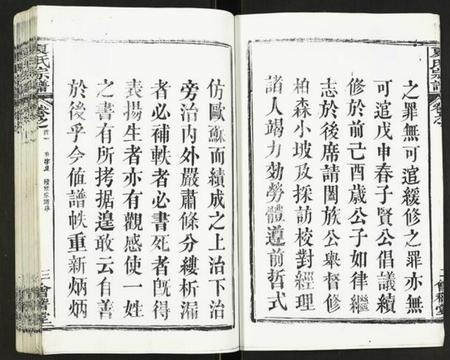 之罪無可逭緩修之罪亦無
可逭戊申春子賢公倡議續
修於前己酉歲公子如律繼
志於後席請闔族公舉督修
柏森小坡及採訪校對經理
諸人竭力効勞體遵前哲式
夏氏宗譜
三
會
堂
仿歐蘇而績成之上治下治
旁治內外嚴肅條分縷析漏
者必補軼者必書死者旣得
表揚生者亦有觀感使一姓
之書有所考据遑敢云有善
於後乎今值譜帙重新炳炳
夏氏宗譜
三
會
堂